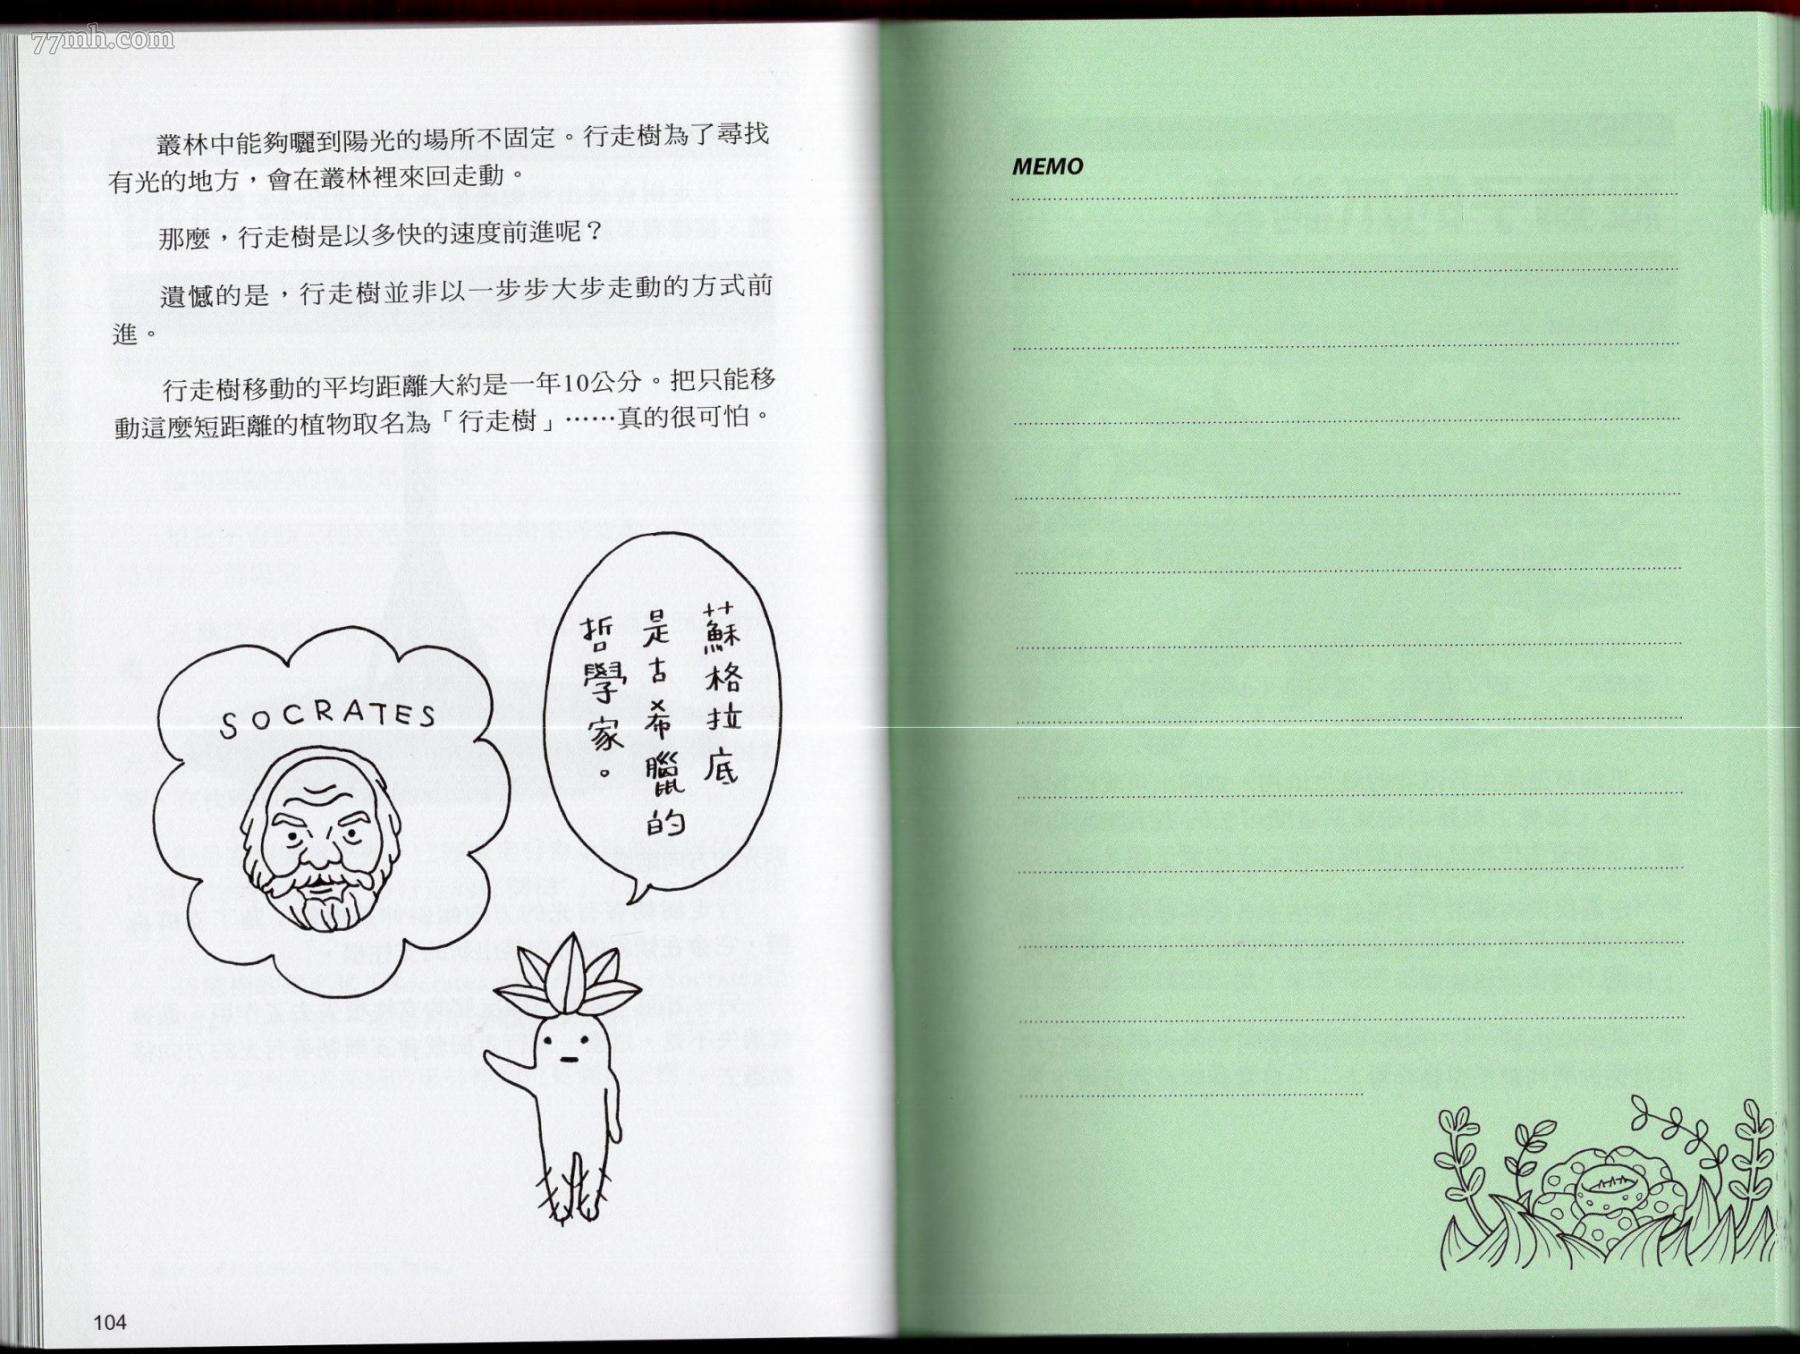 77mh.com
叢林中能夠曬到陽光的場所不固定。行走樹為了尋找
有光的地方，會在叢林裡來回走動。
那麼，行走樹是以多快的速度前進呢？
遺憾的是，行走樹並非以一步步大步走動的方式前
進。
行走樹移動的平均距離大約是一年10公分。把只能移
動這麼短距離的植物取名為「行走樹」……真的很可怕。
蘇格拉底
是古希臘的
哲學家。
SOCRATES
104
MEMO